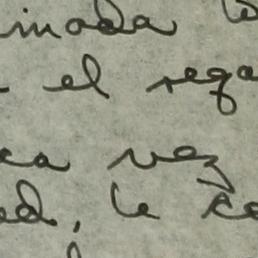 imada
el rega
ca vez
ed, le